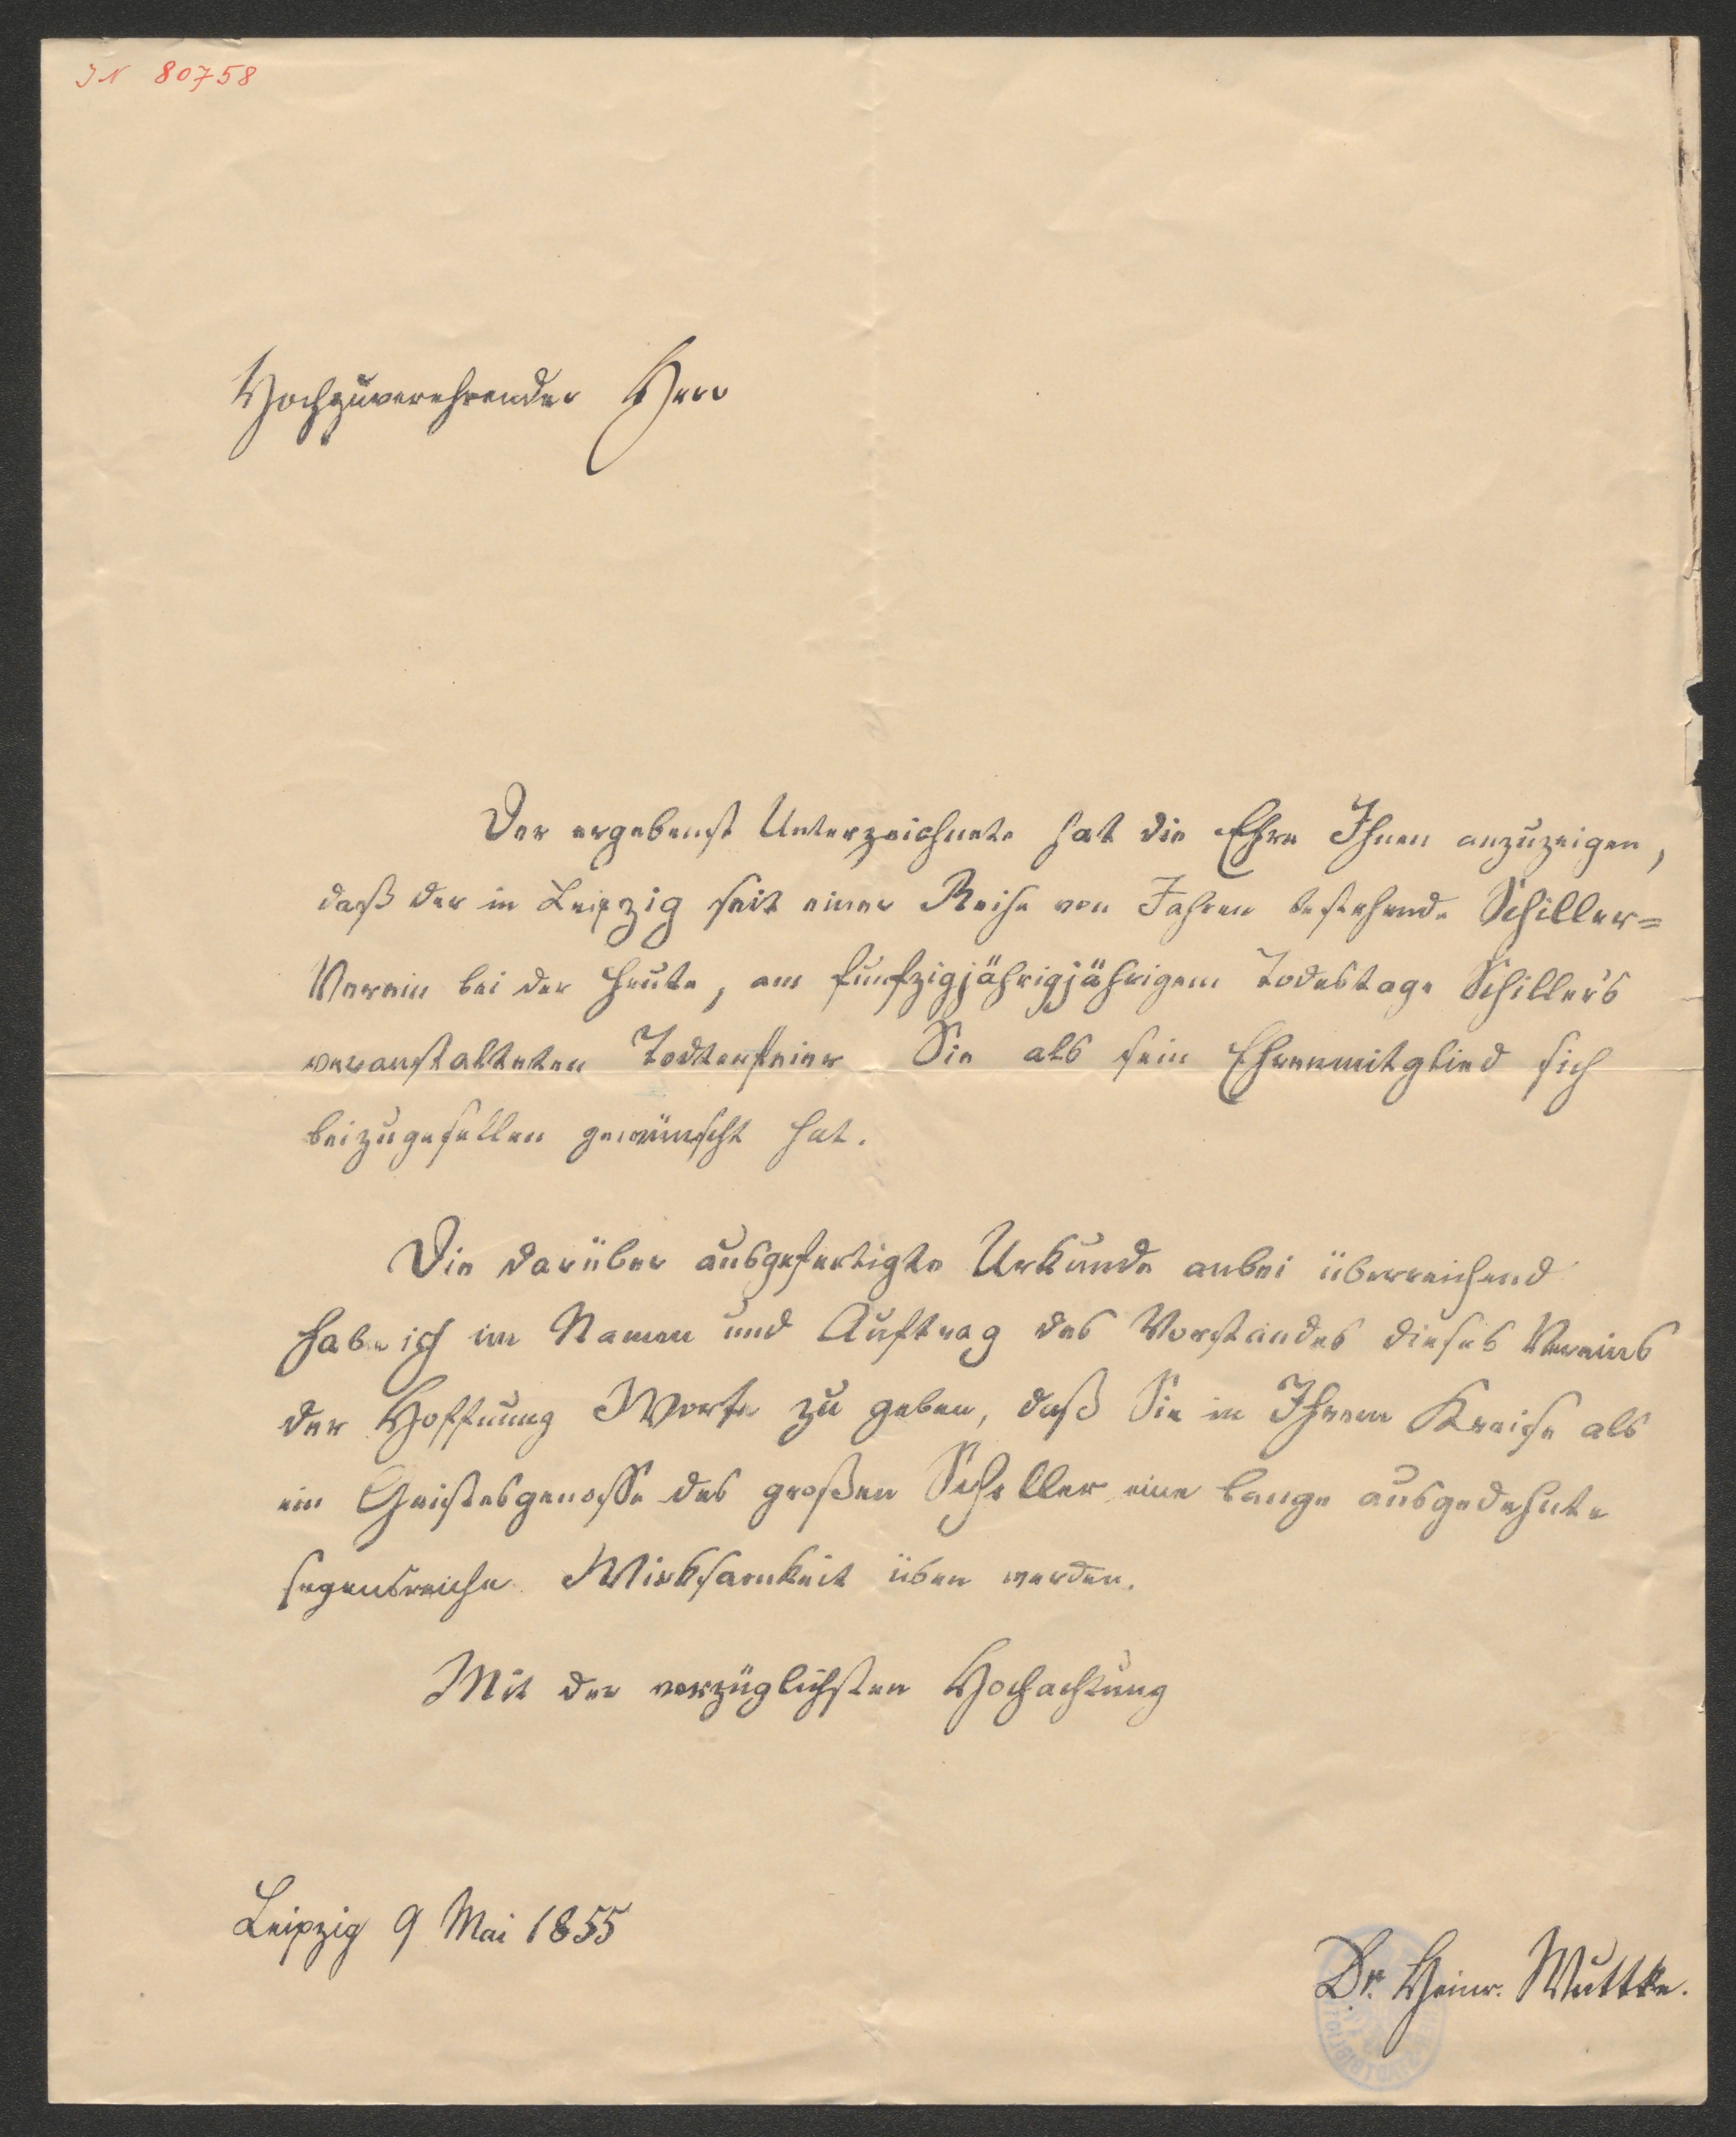 IN 80758
Hochzuverehrender Herr
Der ergebenst Unterzeichnete hat die Ehre Ihnen anzuzeigen,
daß der in Leipzig seit einer Reihe von Jahren bestehende Schiller=
Verein bei der heute, am funfzigjährigjährigem Todestage Schiller's
veranstalteten Todtenfeier Sie als sein Ehrenmitglied sich
beizugesellen gewünscht hat.
Die darüber ausgefertigte Urkunde anbei überreichend
habe ich im Namen und Auftrag des Vorstandes dieses Vereins
der Hoffnung Worte zu geben, daß Sie in Ihrem Kreise als
ein Geistesgenosse des großen Schiller eine lange ausgedehnte
segensreiche Wirksamkeit üben werden.
Mit der vorzüglichsten Hochachtung
Leipzig 9 Mai 1855
Dr. Heinr. Wuttke.